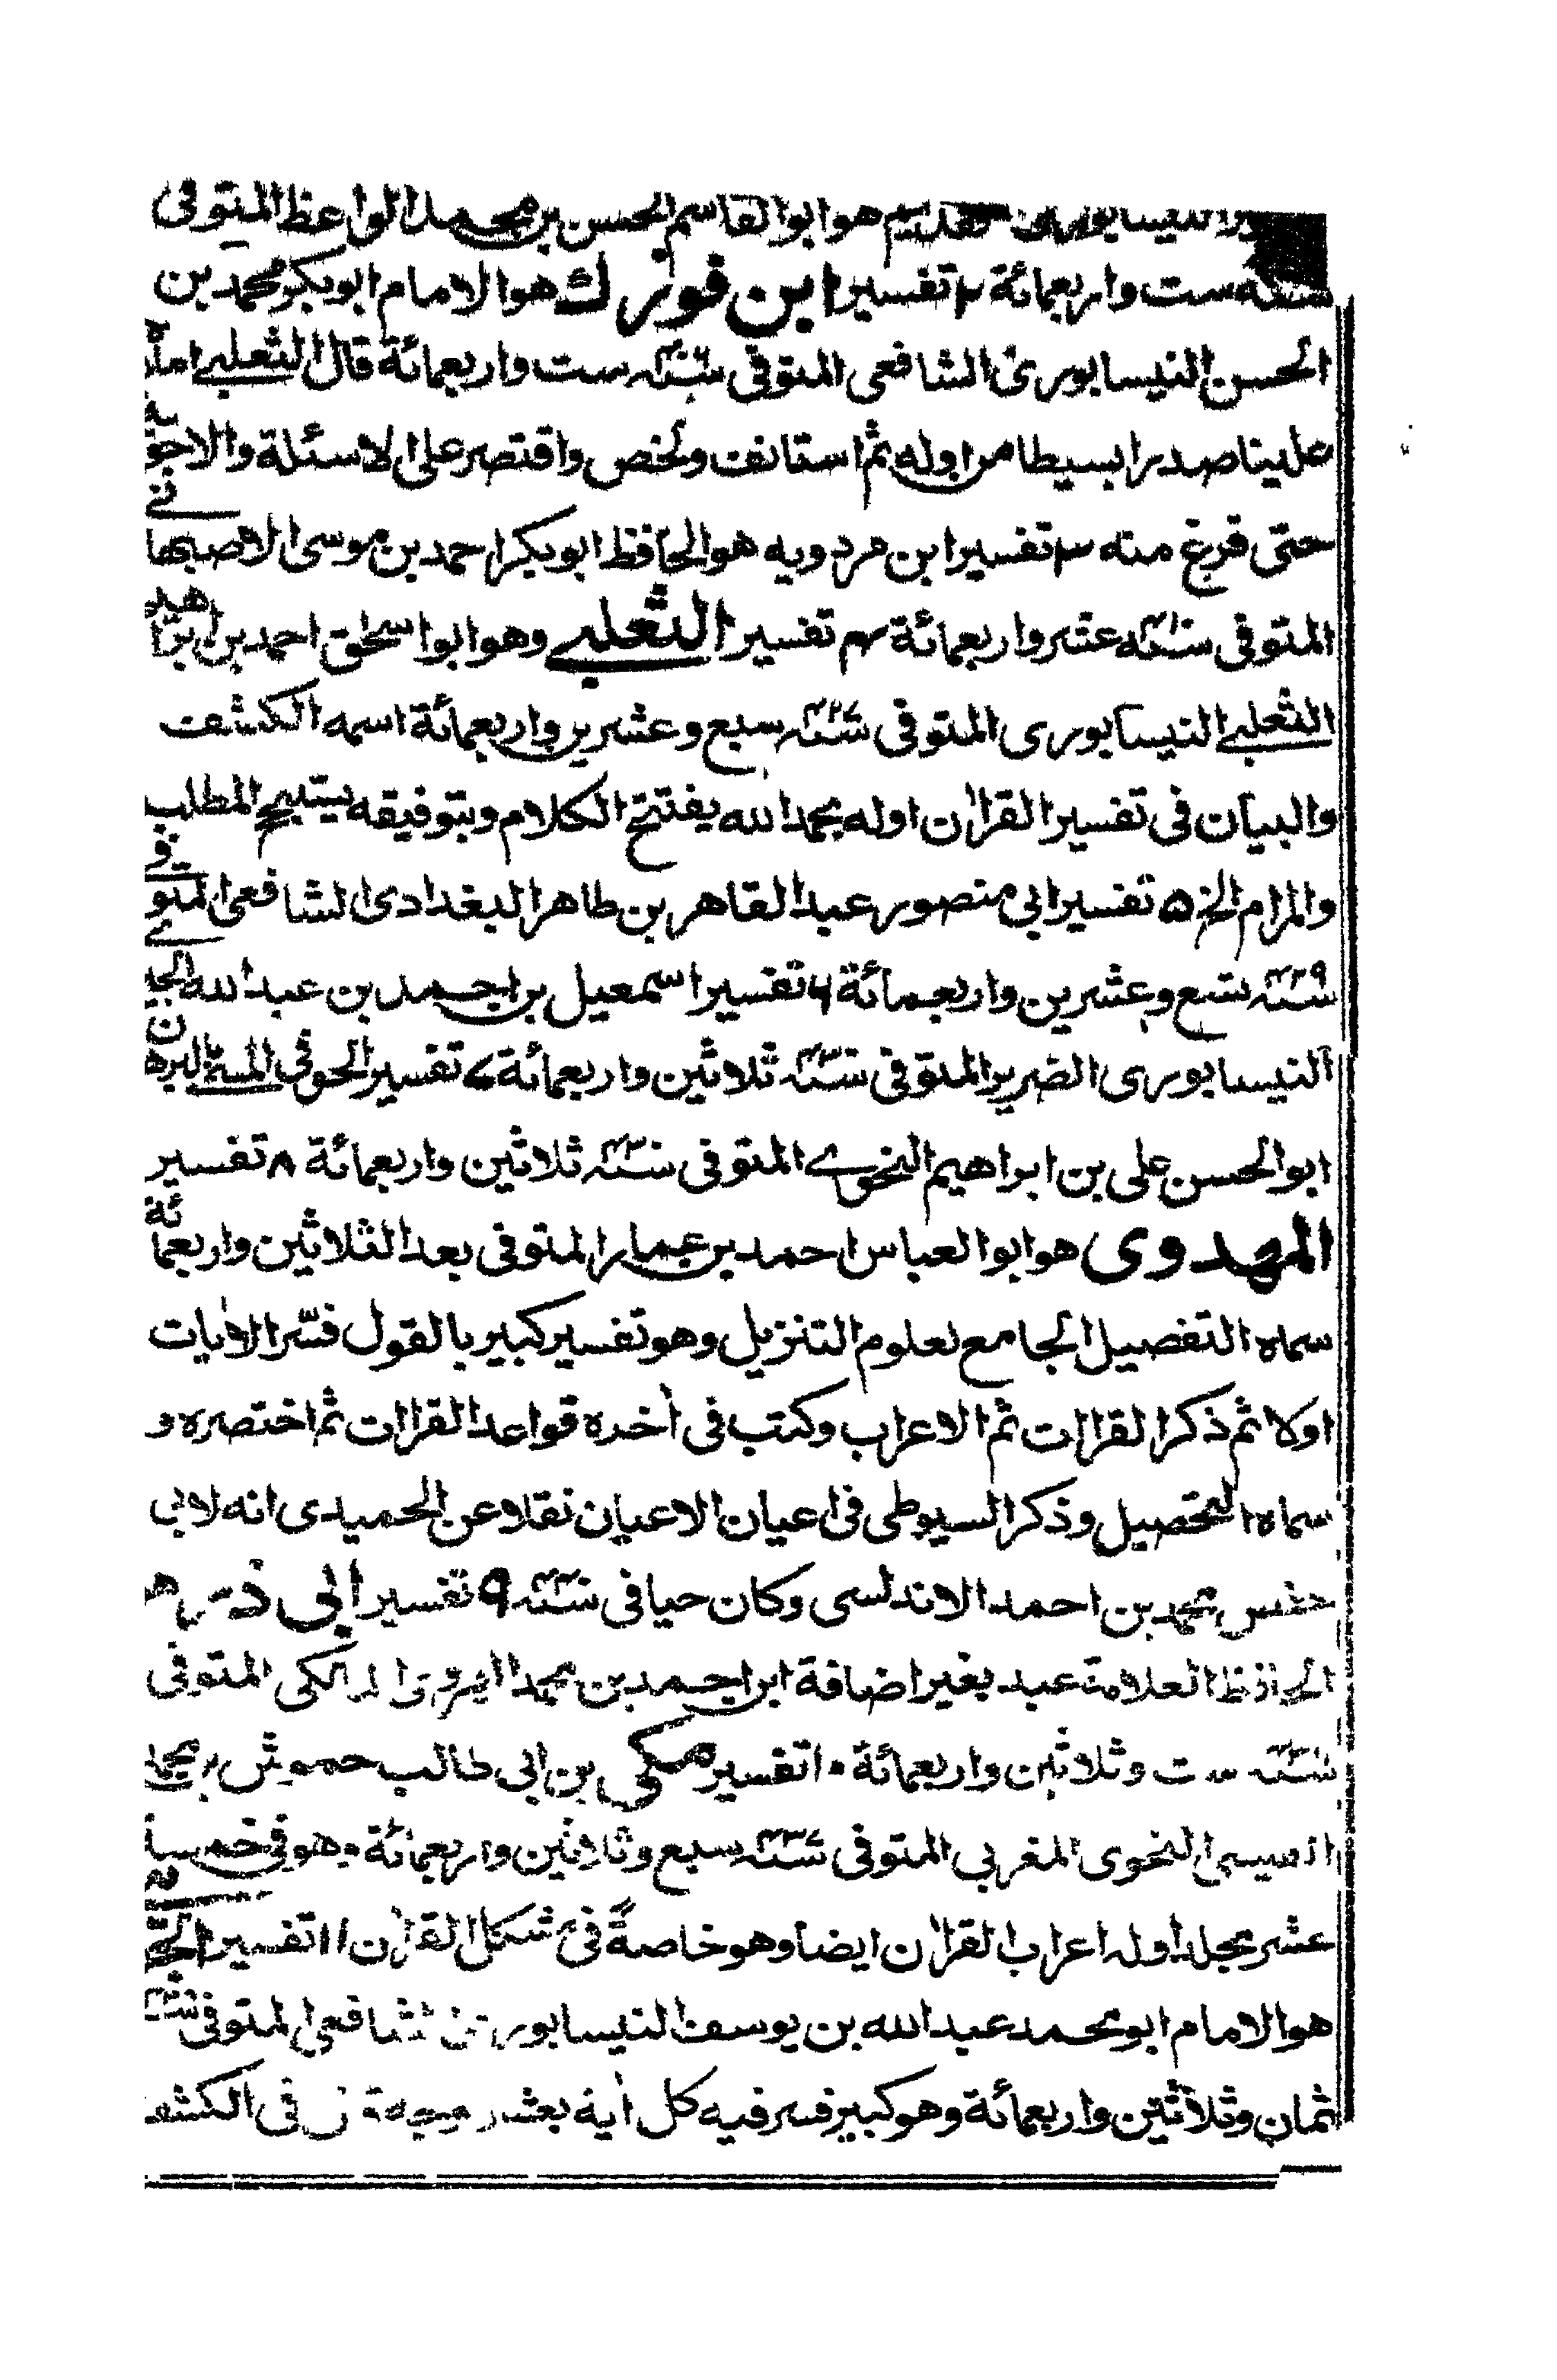 النيسابورى القديم هو ابو القاسم الحسن بن محمد الواعظ المتوفى
سنة ست واربعمائة ٢ تفسير ابن فورك هو الامام ابوبكر محمد بن
الحسن النيسابورى الشافعى المتوفى سنة ٤٠٦ ست واربعمائة قال الثعلبے املا
علينا صدرا بسيطا من اوله ثم استانف ولخص واقتصر على الاسئلة والاجوبة
حتى فرغ منه ٣ تفسير ابن مردويه هو الحافظ ابوبكر احمد بن موسى الاصبهانے
المتوفى سنة ٤١٠ عشر واربعمائة ٤ تفسير الثعلبے وهو ابو اسحٰق احمد بن ابراهيم
الثعلبے النيسابورى المتوفى سنة ٤٢٧ سبع وعشرين واربعمائة اسمه الكشف
والبيان فى تفسير القراٰن اوله بحمد الله يفتتح الكلام وبتوفيقه يستنجح المطلب
والمرام الخ ٥ تفسير ابى منصور عبد القاهر بن طاهر البغدادى الشافعى المتوفے
سنة ٤٢٩ تسع وعشرين واربعمائة ٦ تفسير اسمعيل بن احمد بن عبد الله الحيرے
النيسابورى الضرير المتوفى سنة ٤٣٠ ثلاثين واربعمائة ٧ تفسير الحوفى المسمى البرهان
ابو الحسن على بن ابراهيم النحوے المتوفى سنة ٤٣٠ ثلاثين واربعمائة ٨ تفسير
المهدوى هو ابو العباس احمد بن عمار المتوفى بعد الثلاثين واربعمائة
سماه التفصيل الجامع لعلوم التنزيل وهو تفسير كبير بالقول فسّر الاٰيات
اولا ثم ذكر القراات ثم الاعراب وكتب فى اٰخره قواعد القراات ثم اختصره و
سماه التحصيل وذكر السيوطى فى اعيان الاعيان نقلا عن الحميدى انه لابى
حفص محمد بن احمد الاندلسى وكان حيا فى سنة ٤٣٠ ٩ تفسير ابى ذر هو
الحافظ العلامة عبد بغير اضافة ابن احمد بن محمد الهروى المالكى المتوفى
سنة ست وثلاثين واربعمائة ١٠ تفسير مكى بن ابى طالب حموش بن محمد
القيسى النحوى المغربى المتوفى سنة ٤٣٧ سبع وثلاثين واربعمائة وهو فى خمسة
عشر مجلدا وله اعراب القراٰن ايضا وهو خاصةً فى مشكل القراٰن ١١ تفسير الجوينى
هو الامام ابو محمد عبد الله بن يوسف النيسابورى الشافعى المتوفى سنة
ثمان وثلاثين واربعمائة وهو كبير فسر فيه كل اٰية بعشر فى الكشف